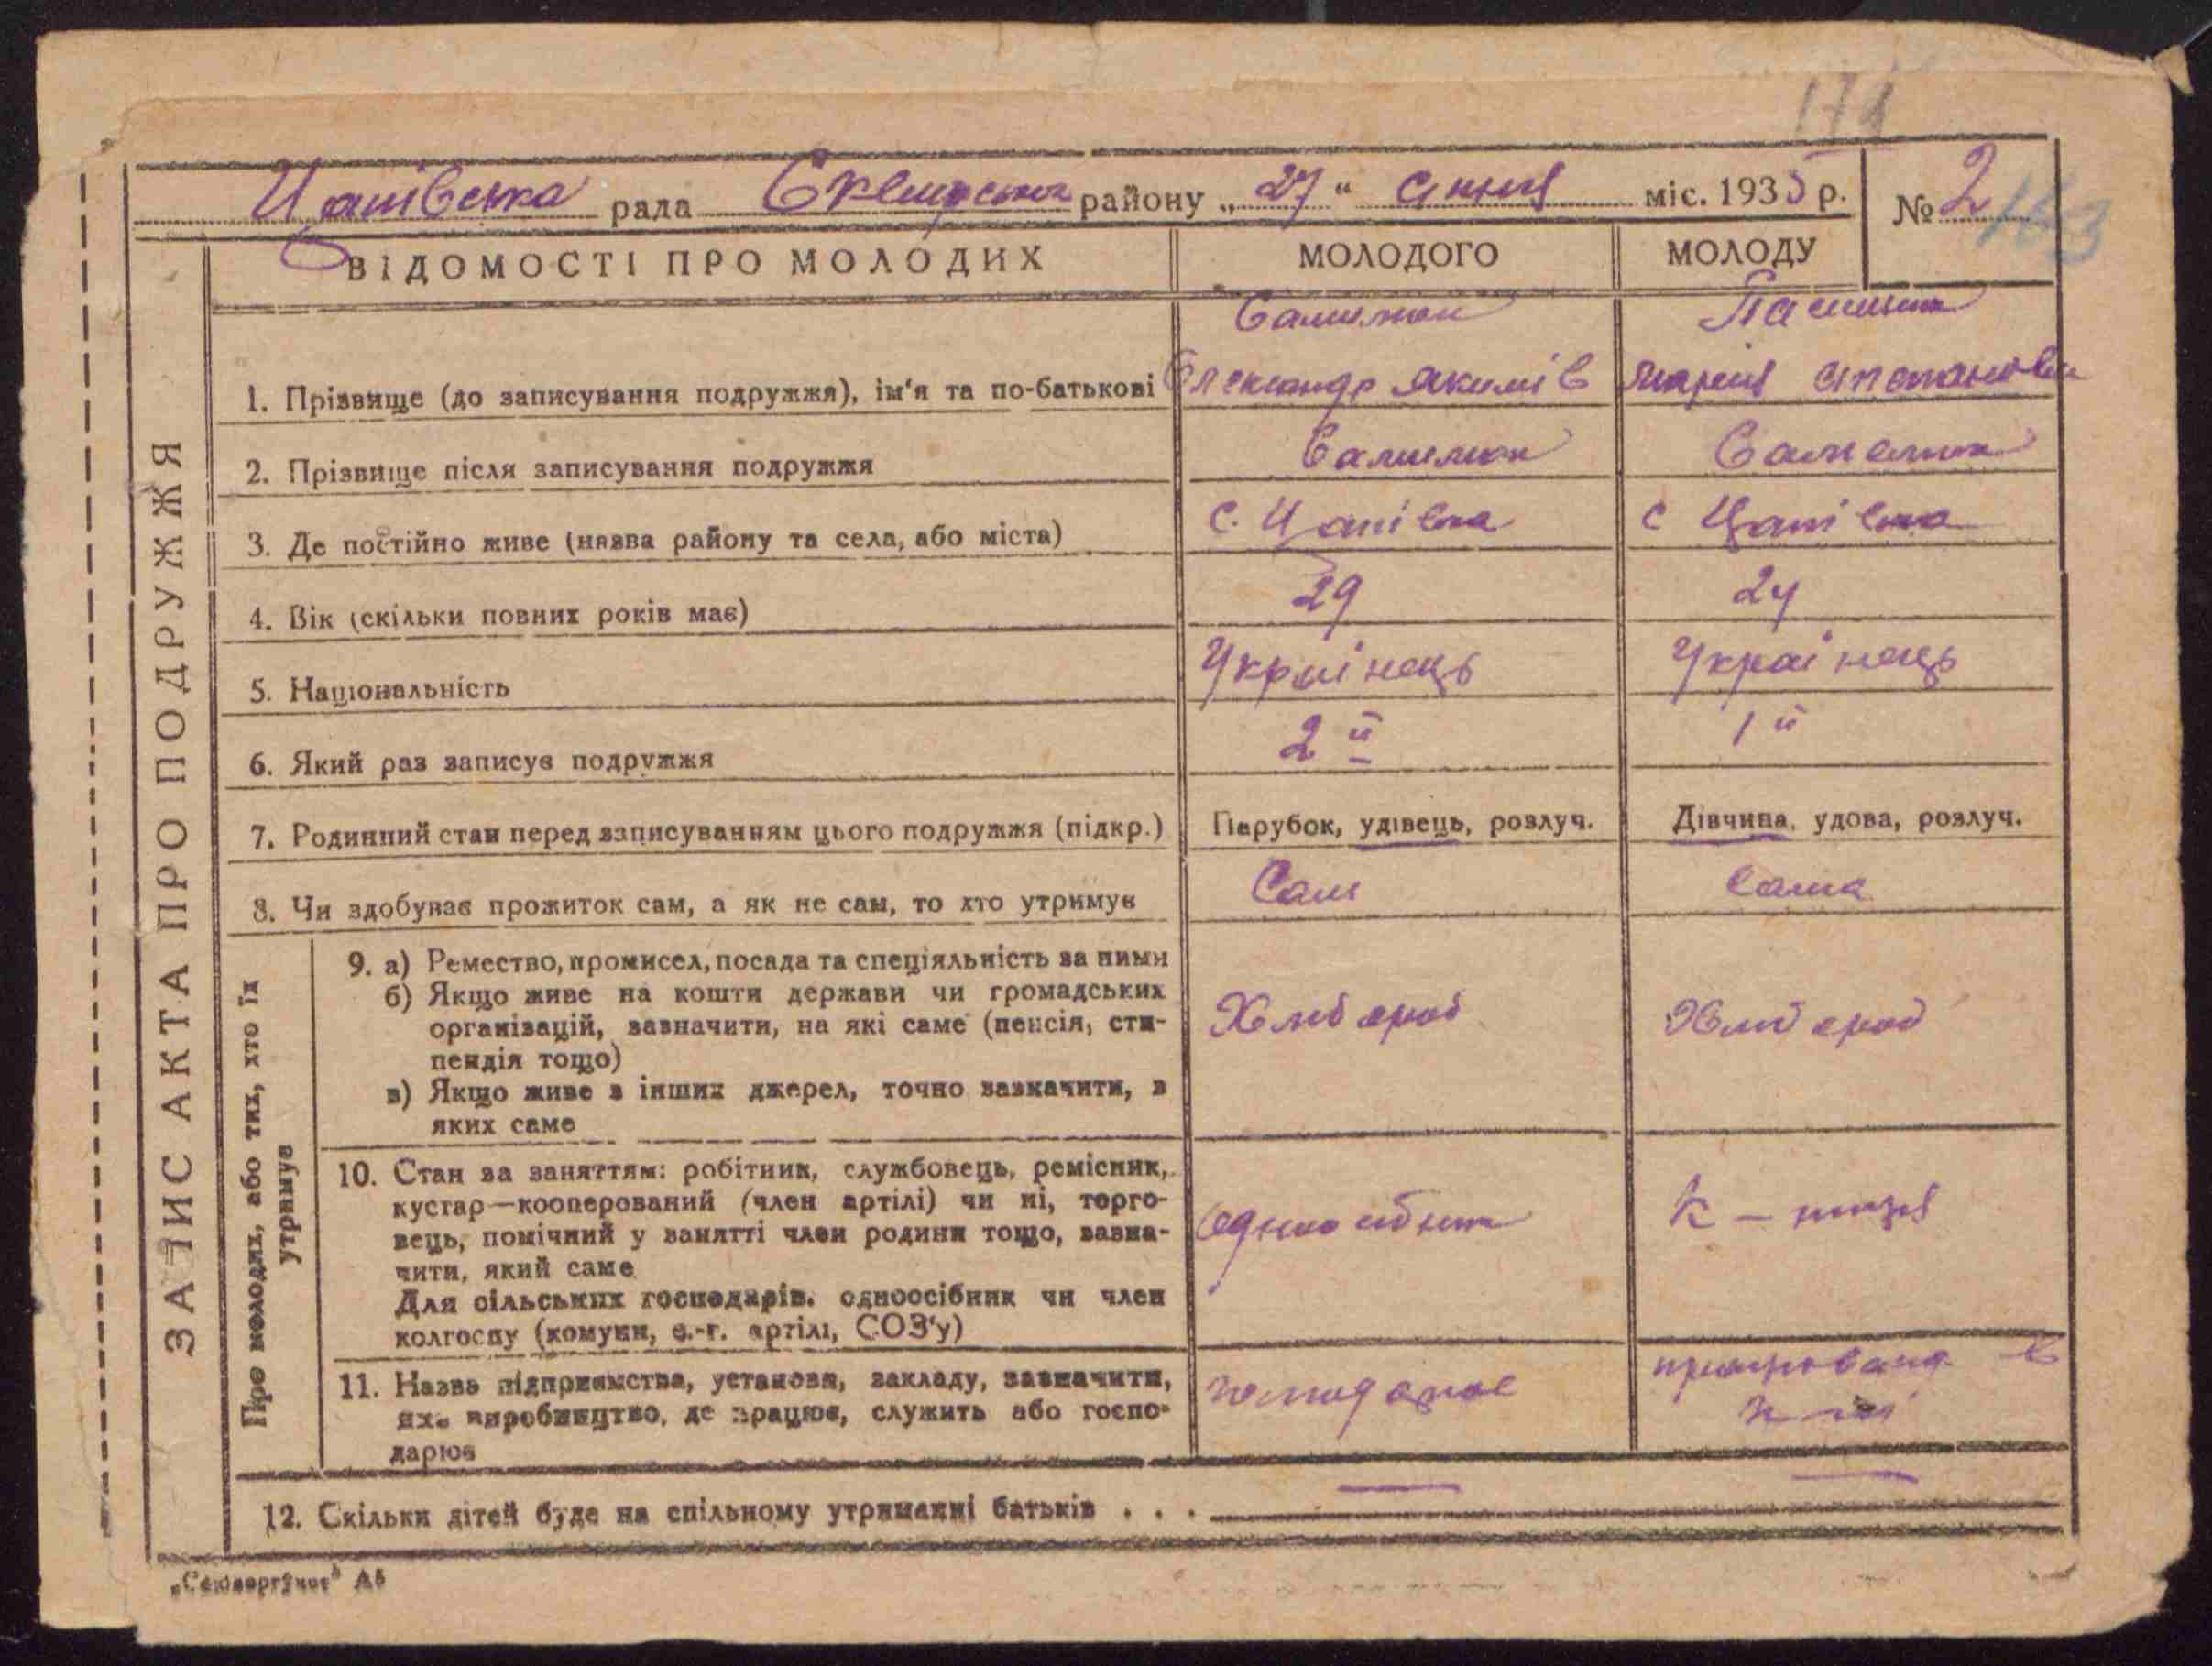 Цапівська рада Сквирська району „27" січня міс. 1935 р. № 2
163
ВІДОМОСТІ ПРО МОЛОДИХ МОЛОДОГО МОЛОДУ
ЗАПИС АКТА ПРО ПОДРУЖЖЯ
1. Прізвище (до записування подружжя), ім'я та по-батькові Олександр Якимів Марія Степановн
2. Прізвище після записування подружжя
3. Де постійно живе (назва району та села, або міста) с. Цапівка с Цапівка
4. Вік (скільки повних років має) 29 24
5. Національність Українець Українець
6. Який раз записує подружжя 2й 1й
7. Родинний стан перед записуванням цього подружжя (підкр.) Парубок, удівець, розлуч. Дівчина, удова, розлуч.
8. Чи здобуває прожиток сам, а як не сам, то хто утримує Сам Сама
Про молодих, або тих, хто їх утримує
9. а) Ремество, промисел, посада та спеціяльність за ними
б) Якщо живе на кошти держави чи громадських
організацій, зазначити, на які саме (пенсія, сти-
пендія тощо) Хлібороб Хлібороб
в) Якщо живе з інших джерел, точно зазначити, з
яких саме
10. Стан за заняттям: робітник, службовець, ремісник,
кустар—кооперований (член артілі) чи ні, торго-
вець, помічний у занятті член родини тощо, зазна-
чити, який саме
Для сільських господарів. одноосібник чи член
колгоспу (комуни, с.-г. артілі, СОЗ'у)
11. Назва підприємства, установи, закладу, зазначити,
яке виробництво, де працює, служить або госпо-
дарює
12. Скільки дітей буде на спільному утриманні батьків . . .